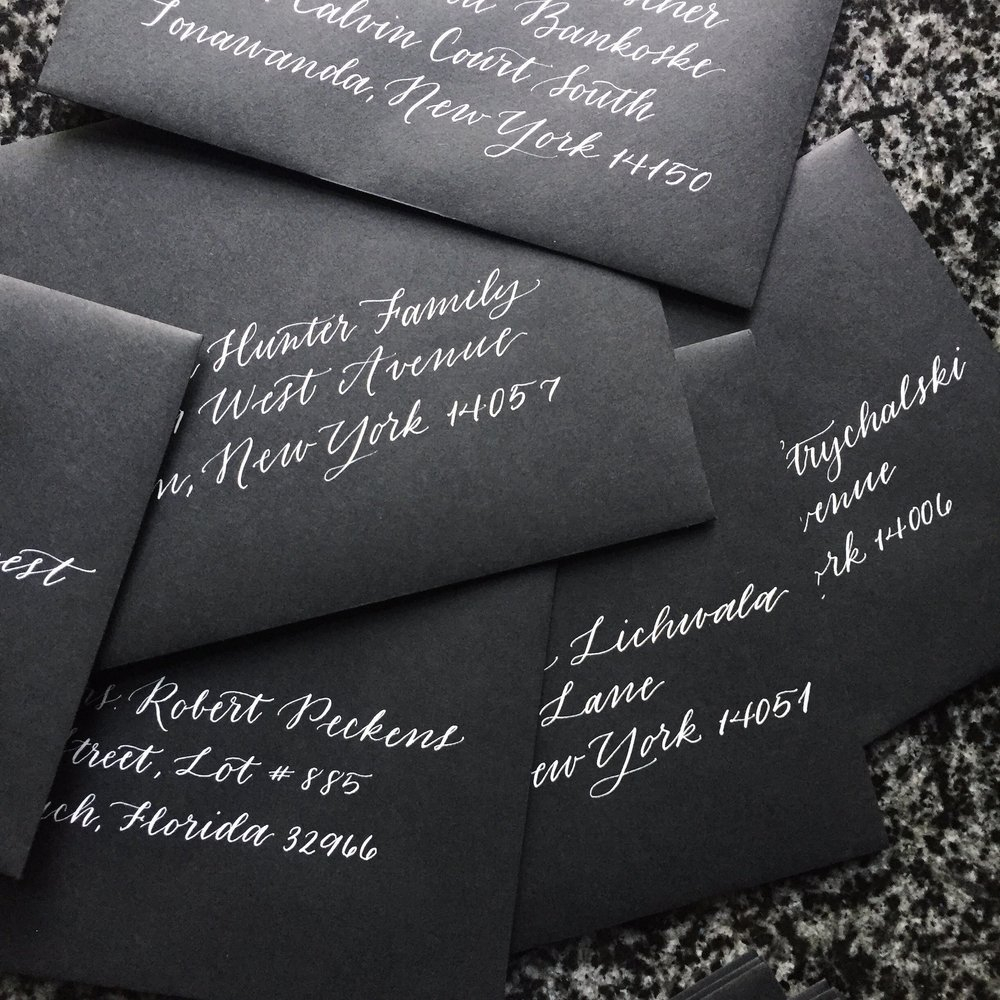 Bankoske
Calvin Court South
Tonawanda, New York 14150
Hunter Family
West Avenue
New York 14057
trychalski
venue
rk 14006
est
s. Robert Peckens
Street, Lot # 885
ch, Florida 32966
Lichwala
Lane
ew York 14051